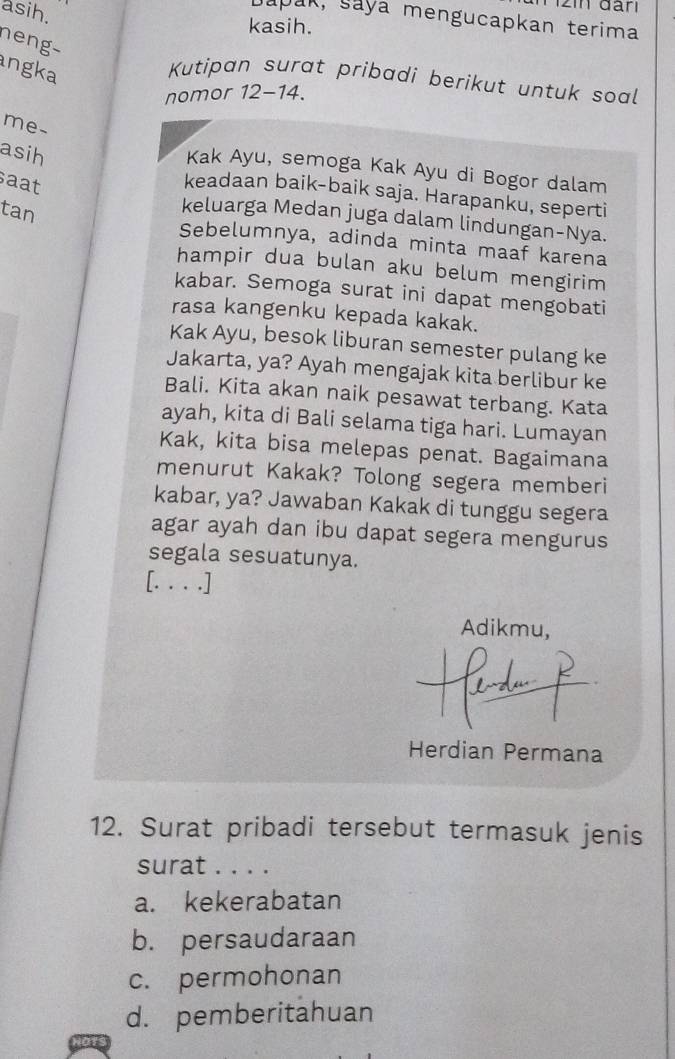 asih.
neng-
angka
me-
asih
saat
tan
izin dari
Bapak, saya mengucapkan terima
kasih.
Kutipan surat pribadi berikut untuk soal
nomor 12-14.
Kak Ayu, semoga Kak Ayu di Bogor dalam
keadaan baik-baik saja. Harapanku, seperti
keluarga Medan juga dalam lindungan-Nya.
Sebelumnya, adinda minta maaf karena
hampir dua bulan aku belum mengirim
kabar. Semoga surat ini dapat mengobati
rasa kangenku kepada kakak.
Kak Ayu, besok liburan semester pulang ke
Jakarta, ya? Ayah mengajak kita berlibur ke
Bali. Kita akan naik pesawat terbang. Kata
ayah, kita di Bali selama tiga hari. Lumayan
Kak, kita bisa melepas penat. Bagaimana
menurut Kakak? Tolong segera memberi
kabar, ya? Jawaban Kakak di tunggu segera
agar ayah dan ibu dapat segera mengurus
segala sesuatunya.
[. . . .]
Adikmu,
Herdian Permana
12. Surat pribadi tersebut termasuk jenis
surat . . . .
a. kekerabatan
b. persaudaraan
c. permohonan
d. pemberitahuan
HOTS